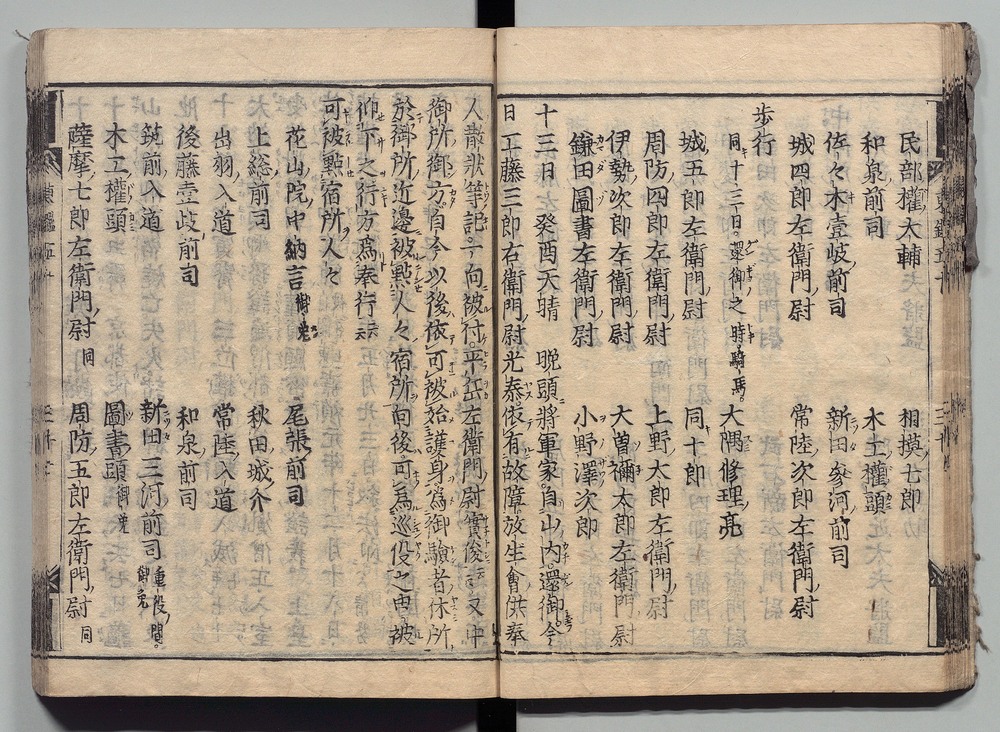 民部權大輔　相摸七郎
和泉前司　木工權頭
佐々木壹岐前司　新田參河前司
城四郎左衛門尉　常陸次郎左衛門尉
歩行
同十三日還御之時騎馬　大隅修理亮
城五郎左衛門尉　同十郎
周防四郎左衛門尉　上野太郎左衛門尉
伊勢次郎左衛門尉　大曽禰太郎左衛門尉
鎌田圖書左衛門尉　小野澤次郎
十三日　癸酉天晴　晩頭將軍家自山内還御今
日工藤三郎右衛門尉光泰依有故障放生會供奉
人散狀等記一向被付平岳左衛門尉實俊云云又中
御所御方自今以後依可被始護身爲御驗者休所
於御所近邊被點人々宿所向後可爲巡役之由被
仰下之行方爲奉行云云
可被點宿所人々
花山院中納言御免　尾張前司
上総前司　秋田城介
出羽入道　常陸入道
後藤壹岐前司　和泉前司
筑前入道　新田三河前司重役間御免
木工權頭　圖書頭御免
薩摩七郎左衛門尉同　周防五郎左衛門尉同